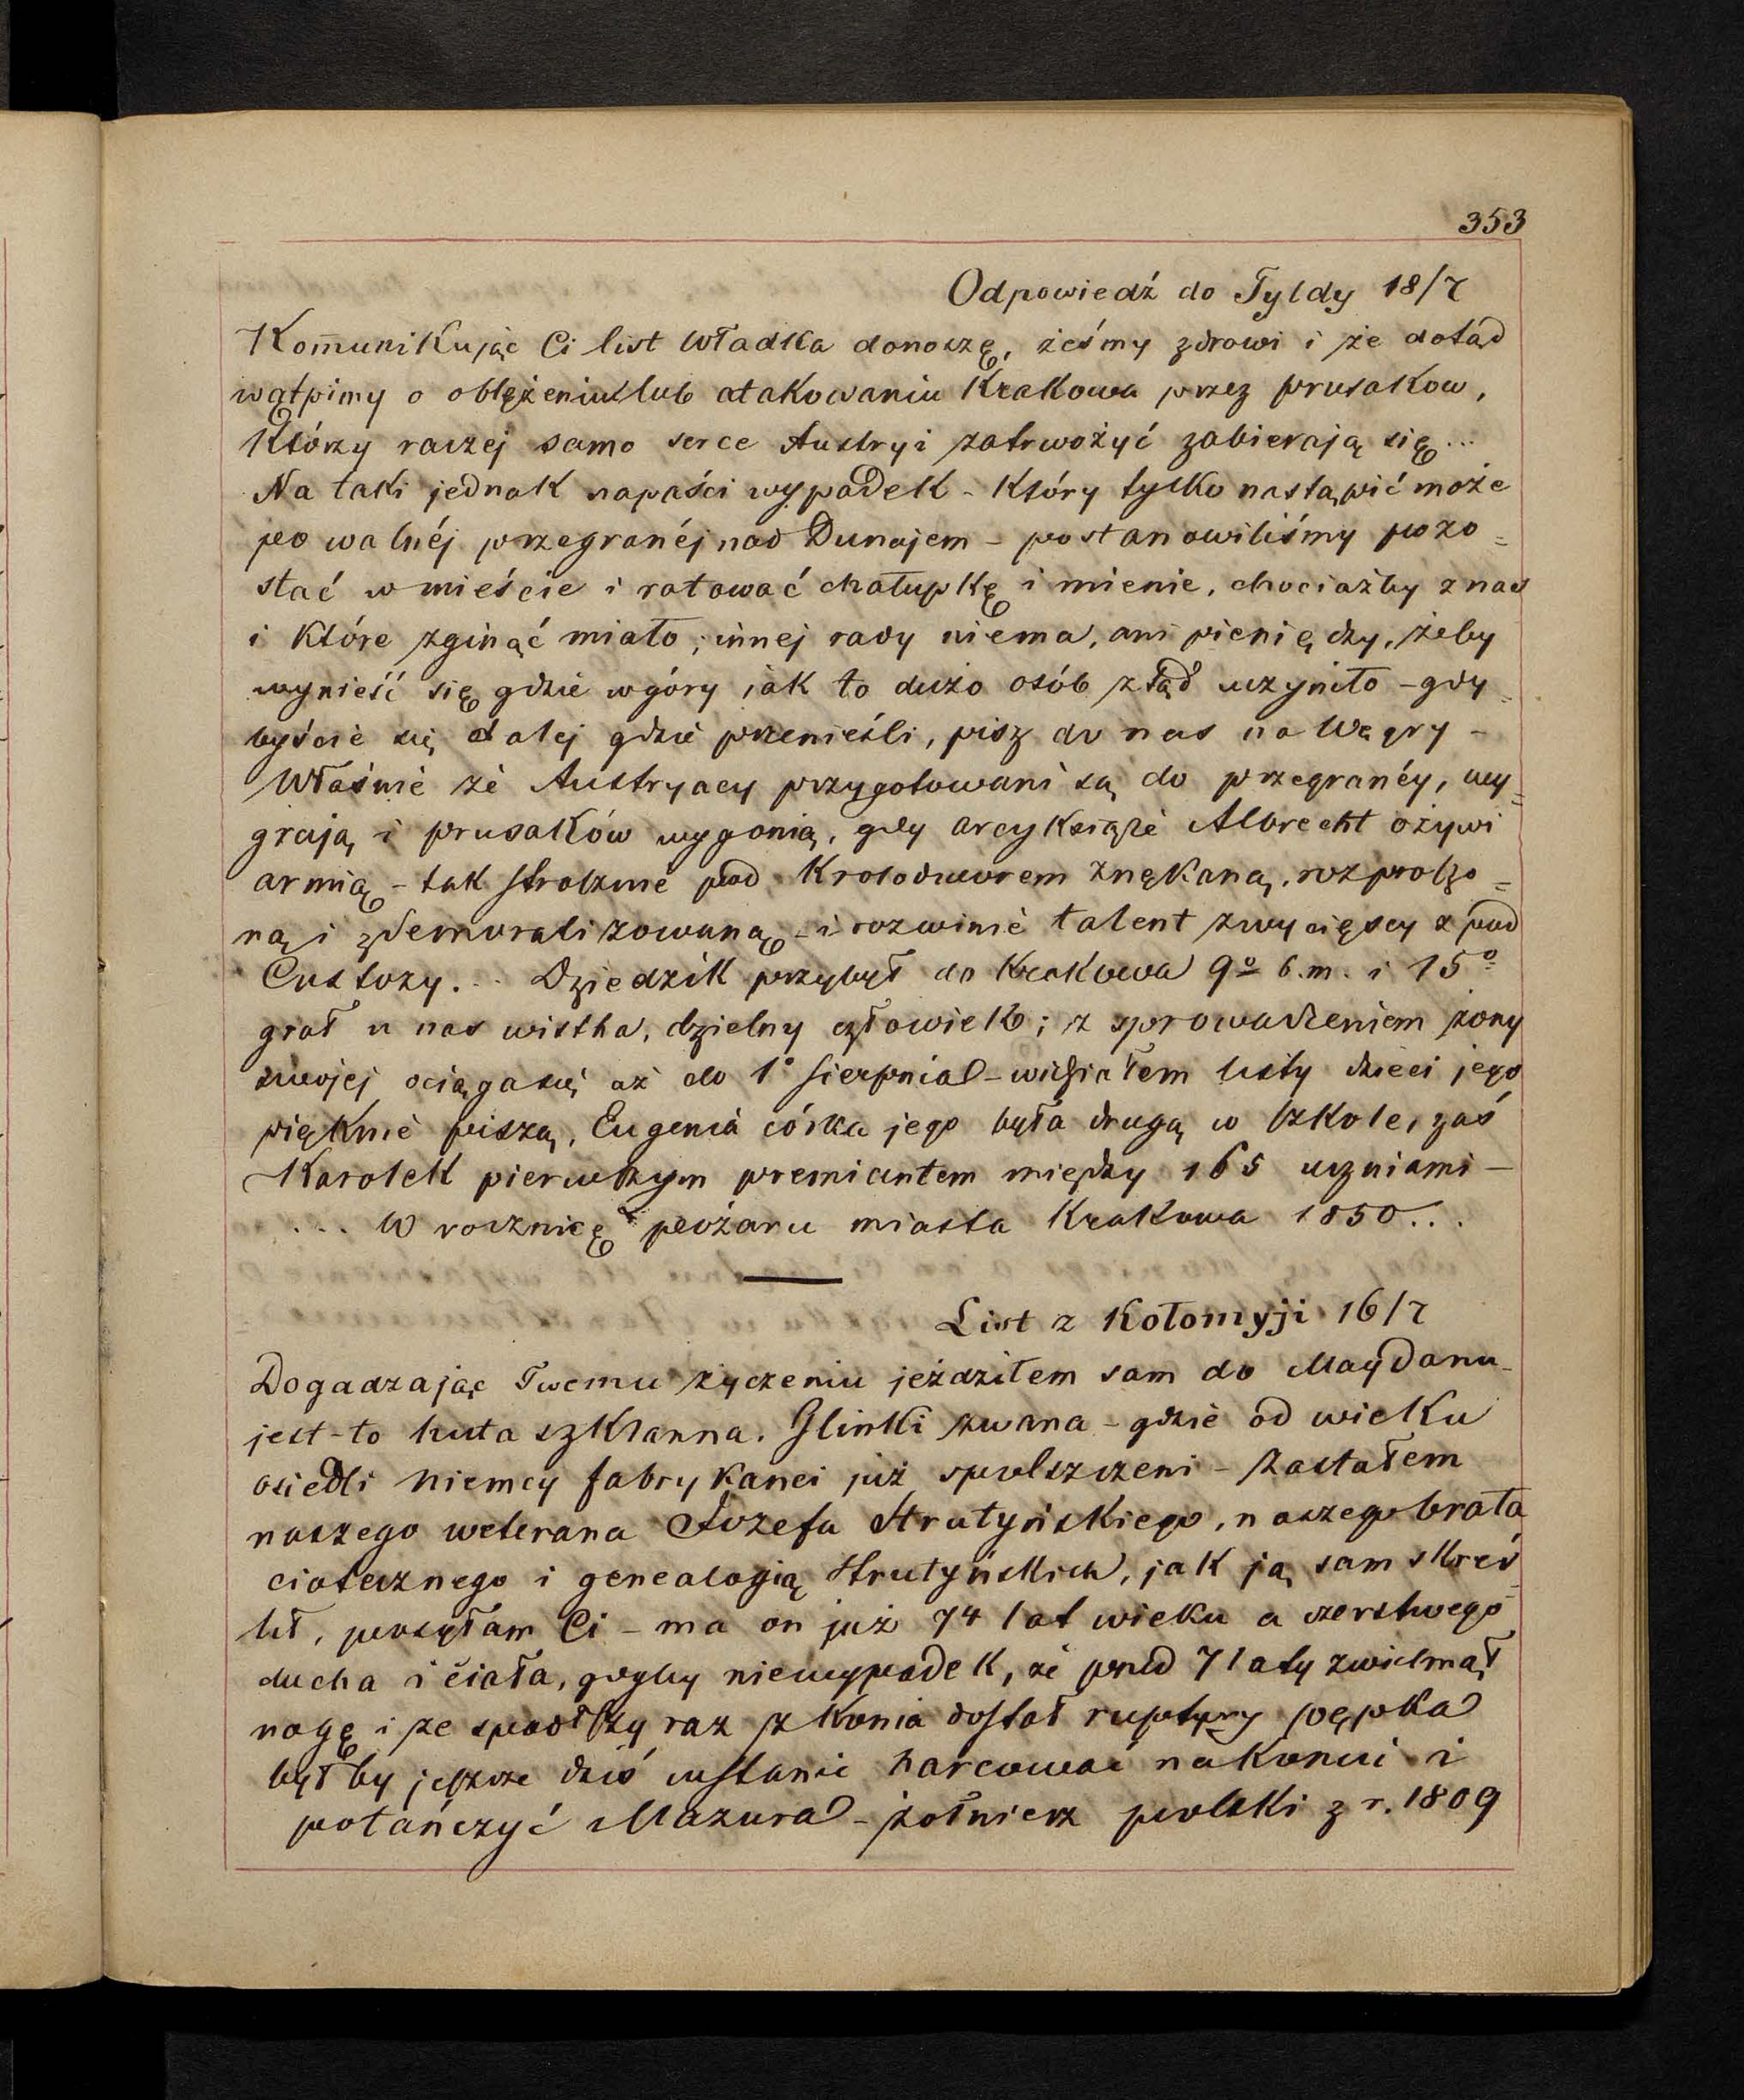 353
Odpowiedź do Tyldy 18/7
Kom̄unikując Ci list Władka donoszę, żeśmy zdrowi i że dotąd
wątpimy o oblężeniu lub atakowaniu Krakowa przez prusakow,
którzy raczej samo serce Austryi zatrwożyć zabierają się...
Na taki jednak napaści wypadek - który tylko nastąpić może
po walnéj przegranéj nad Dunajem - postanowiliśmy pozo=
stać w mieście i ratować chałupkę i mienie, chociażby z nas
i które zginąć miało; innej rady niema, ani pieniędzy, żeby
wynieść się gdzie w góry jak to dużo osób ztąd uczyniło - gdy=
byście się dalej gdzie przenieśli, pisz do nas na Węgry -
Właśnie że Austryacy przygotowani są do przegranéy, wy=
grają i prusaków wygonią, gdy arcyksiąże Albrecht ożywi
armią - tak strasznie pod Krolodworem znękaną, rozproszo=
ną i zdemoralizowaną - i rozwinie talent zwycięscy z pod
Custozy... Dziedzik przybył do Krakowa 9º b.m. i 15º
grał u nas wistha, dzielny człowiek; z sprowadzeniem żony
swojej ociąga się aż do 1º sierpnia - widziałem listy dzieci jego
pięknie piszą, Eugenia córka jego była drugą w szkole, zaś
Karolek pierwszym premiantem między 165 uczniami -
... W rocznicę pożaru miasta Krakowa 1850...
List z Kołomyji 16/7
Dogadzając Twemu życzeniu jeździłem sam do Maydanu -
jest-to huta szklanna. Glinki zwana - gdzie od wieku
osiedli niemcy fabrykanci już spolszczeni - Zastałem
naszego weterana Józefa Strutyńskiego, naszego brata
ciotecznego i genealogią Strutyńskich, jak ją sam skreś=
lił, posyłam Ci - ma on już 74 lat wieku a czerstwego
ducha i ciała, gdyby niewypadek, że przed 7 laty zwichnął
nogę i że spadłszy raz z konia dostał ruptury pępka
byłby jeszcze dziś wstanie harcować na koniu i
potańczyć Mazura - żołnierz polski z r. 1809